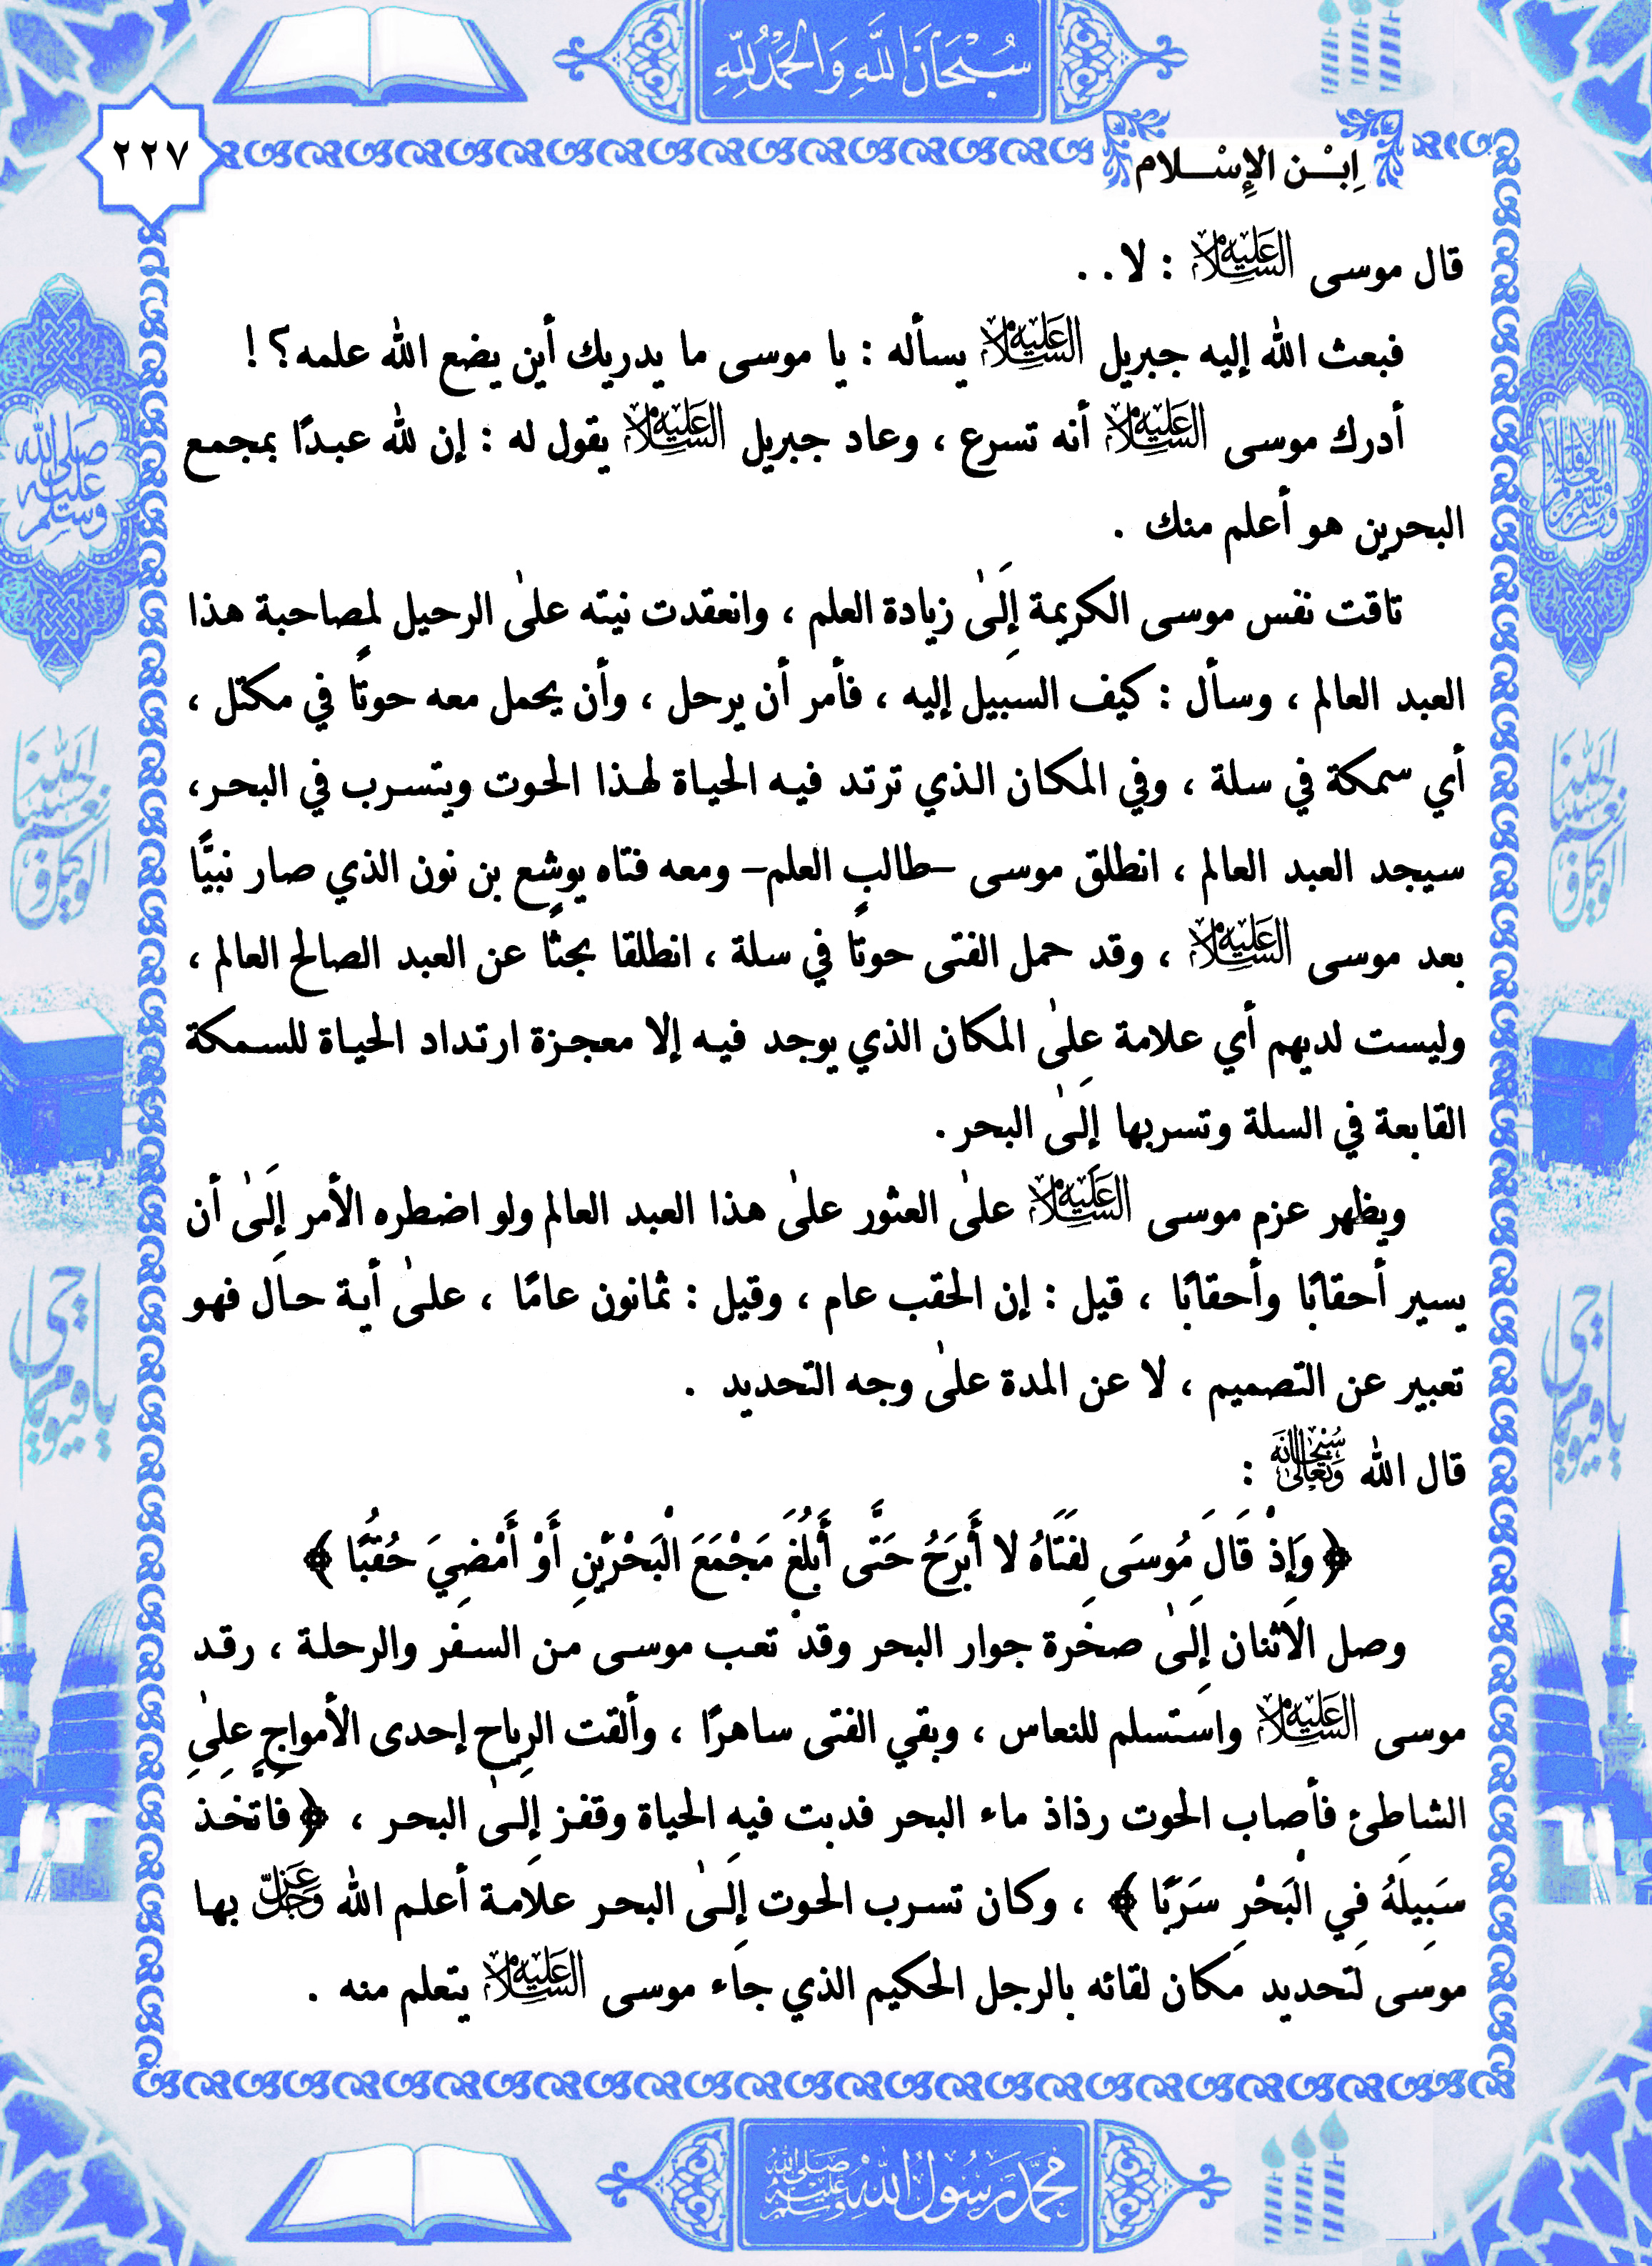 سُبْحَانَ اللَّهِ وَالْحَمْدُ لِلَّهِ
٢٢٧
اِبْن الإِسْلام
قال موسى عَلَيْهِ السَّلَام : لا . .
فبعث الله إليه جبريل عَلَيْهِ السَّلَام يسأله : يا موسى ما يدريك أين يضع الله علمه؟ !
أدرك موسى عَلَيْهِ السَّلَام أنه تسرع ، وعاد جبريل عَلَيْهِ السَّلَام يقول له : إن لله عبدًا بمجمع
البحرين هو أعلم منك .
تاقت نفس موسى الكريمة إِلَىٰ زيادة العلم ، وانعقدت نيته علىٰ الرحيل لمصاحبة هذا
العبد العالم ، وسأل : كيف السبيل إليه ، فأمر أن يرحل ، وأن يحمل معه حوتًا في مكتل ،
أي سمكة في سلة ، وفي المكان الذي ترتد فيه الحياة لهذا الحوت ويتسرب في البحر،
سيجد العبد العالم ، انطلق موسى –طالب العلم– ومعه فتاه يوشع بن نون الذي صار نبيًّا
بعد موسى عَلَيْهِ السَّلَام ، وقد حمل الفتى حوتًا في سلة ، انطلقا بحثًا عن العبد الصالح العالم ،
وليست لديهم أي علامة علىٰ المكان الذي يوجد فيه إلا معجزة ارتداد الحياة للسمكة
القابعة في السلة وتسربها إِلَىٰ البحر .
ويظهر عزم موسى عَلَيْهِ السَّلَام علىٰ العثور علىٰ هذا العبد العالم ولو اضطره الأمر إِلَىٰ أن
يسير أحقابًا وأحقابًا ، قيل : إن الحقب عام ، وقيل : ثمانون عامًا ، علىٰ أية حال فهو
تعبير عن التصميم ، لا عن المدة علىٰ وجه التحديد .
قال الله سُبْحَانَهُ وَتَعَالَىٰ :
﴿ وَإِذْ قَالَ مُوسَى لِفَتَاهُ لا أَبْرَحُ حَتَّى أَبْلُغَ مَجْمَعَ الْبَحْرَيْنِ أَوْ أَمْضِيَ حُقُبًا ﴾
وصل الاثنان إِلَىٰ صخرة جوار البحر وقد تعب موسى من السفر والرحلة ، رقد
موسى عَلَيْهِ السَّلَام واستسلم للنعاس ، وبقي الفتى ساهرًا ، وألقت الرياح إحدى الأمواج علىٰ
الشاطئ فأصاب الحوت رذاذ ماء البحر فدبت فيه الحياة وقفز إِلَىٰ البحر ، ﴿ فاتخذ
سَبِيلَهُ فِي الْبَحْرِ سَرَبًا ﴾ ، وكان تسرب الحوت إِلَىٰ البحر علامة أعلم الله عَزَّ وَجَلَّ بها
موسى لتحديد مكان لقائه بالرجل الحكيم الذي جاء موسى عَلَيْهِ السَّلَام يتعلم منه .
صلى الله عليه وسلم
حسبنا الله ونعم الوكيل
يا حي يا قيوم
مُحَمَّدٌ رَسُولُ اللَّهِ صلى الله عليه وسلم